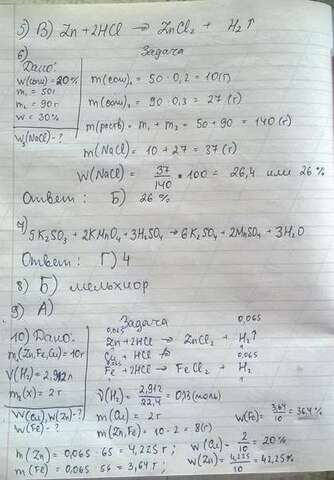 5) В) Zn + 2HCl → ZnCl₂ + H₂↑
6) Задача
Дано:
W(соли) = 20%
m₁ = 50г
m₂ = 90г
W = 30%
W₃(NaCl) - ?
m(соли)₁ = 50 · 0,2 = 10(г)
m(соли)₂ = 90 · 0,3 = 27 (г)
m(раств) = m₁ + m₂ = 50 + 90 = 140 (г)
m(NaCl) = 10 + 27 = 37 (г)
W(NaCl) = 37/140 · 100 = 26,4 или 26 %
Ответ: Б) 26%
7) 5K₂SO₃ + 2KMnO₄ + 3H₂SO₄ → 6K₂SO₄ + 2MnSO₄ + 3H₂O
Ответ: Г) 4
8) Б) мельхиор
9) А)
10) Дано:
m(Zn, Fe, Cu) = 10г
V(H₂) = 2,912л
m(x) = 2г
W(Cu), W(Zn) - ?
W(Fe) - ?
Задача
0,065 0,065
Zn + 2HCl → ZnCl₂ + H₂↑
1 1
Cu + HCl ↛
0,065 0,065
Fe + 2HCl → FeCl₂ + H₂
1 1
ν(H₂) = 2,912/22,4 = 0,13(моль)
m(Cu) = 2г
m(Zn, Fe) = 10 - 2 = 8(г)
W(Fe) = 3,64/10 = 36,4%
m(Zn) = 0,065 · 65 = 4,225г;
m(Fe) = 0,065 · 56 = 3,64г;
W(Cu) = 2/10 = 20%
W(Zn) = 4,225/10 = 42,25%